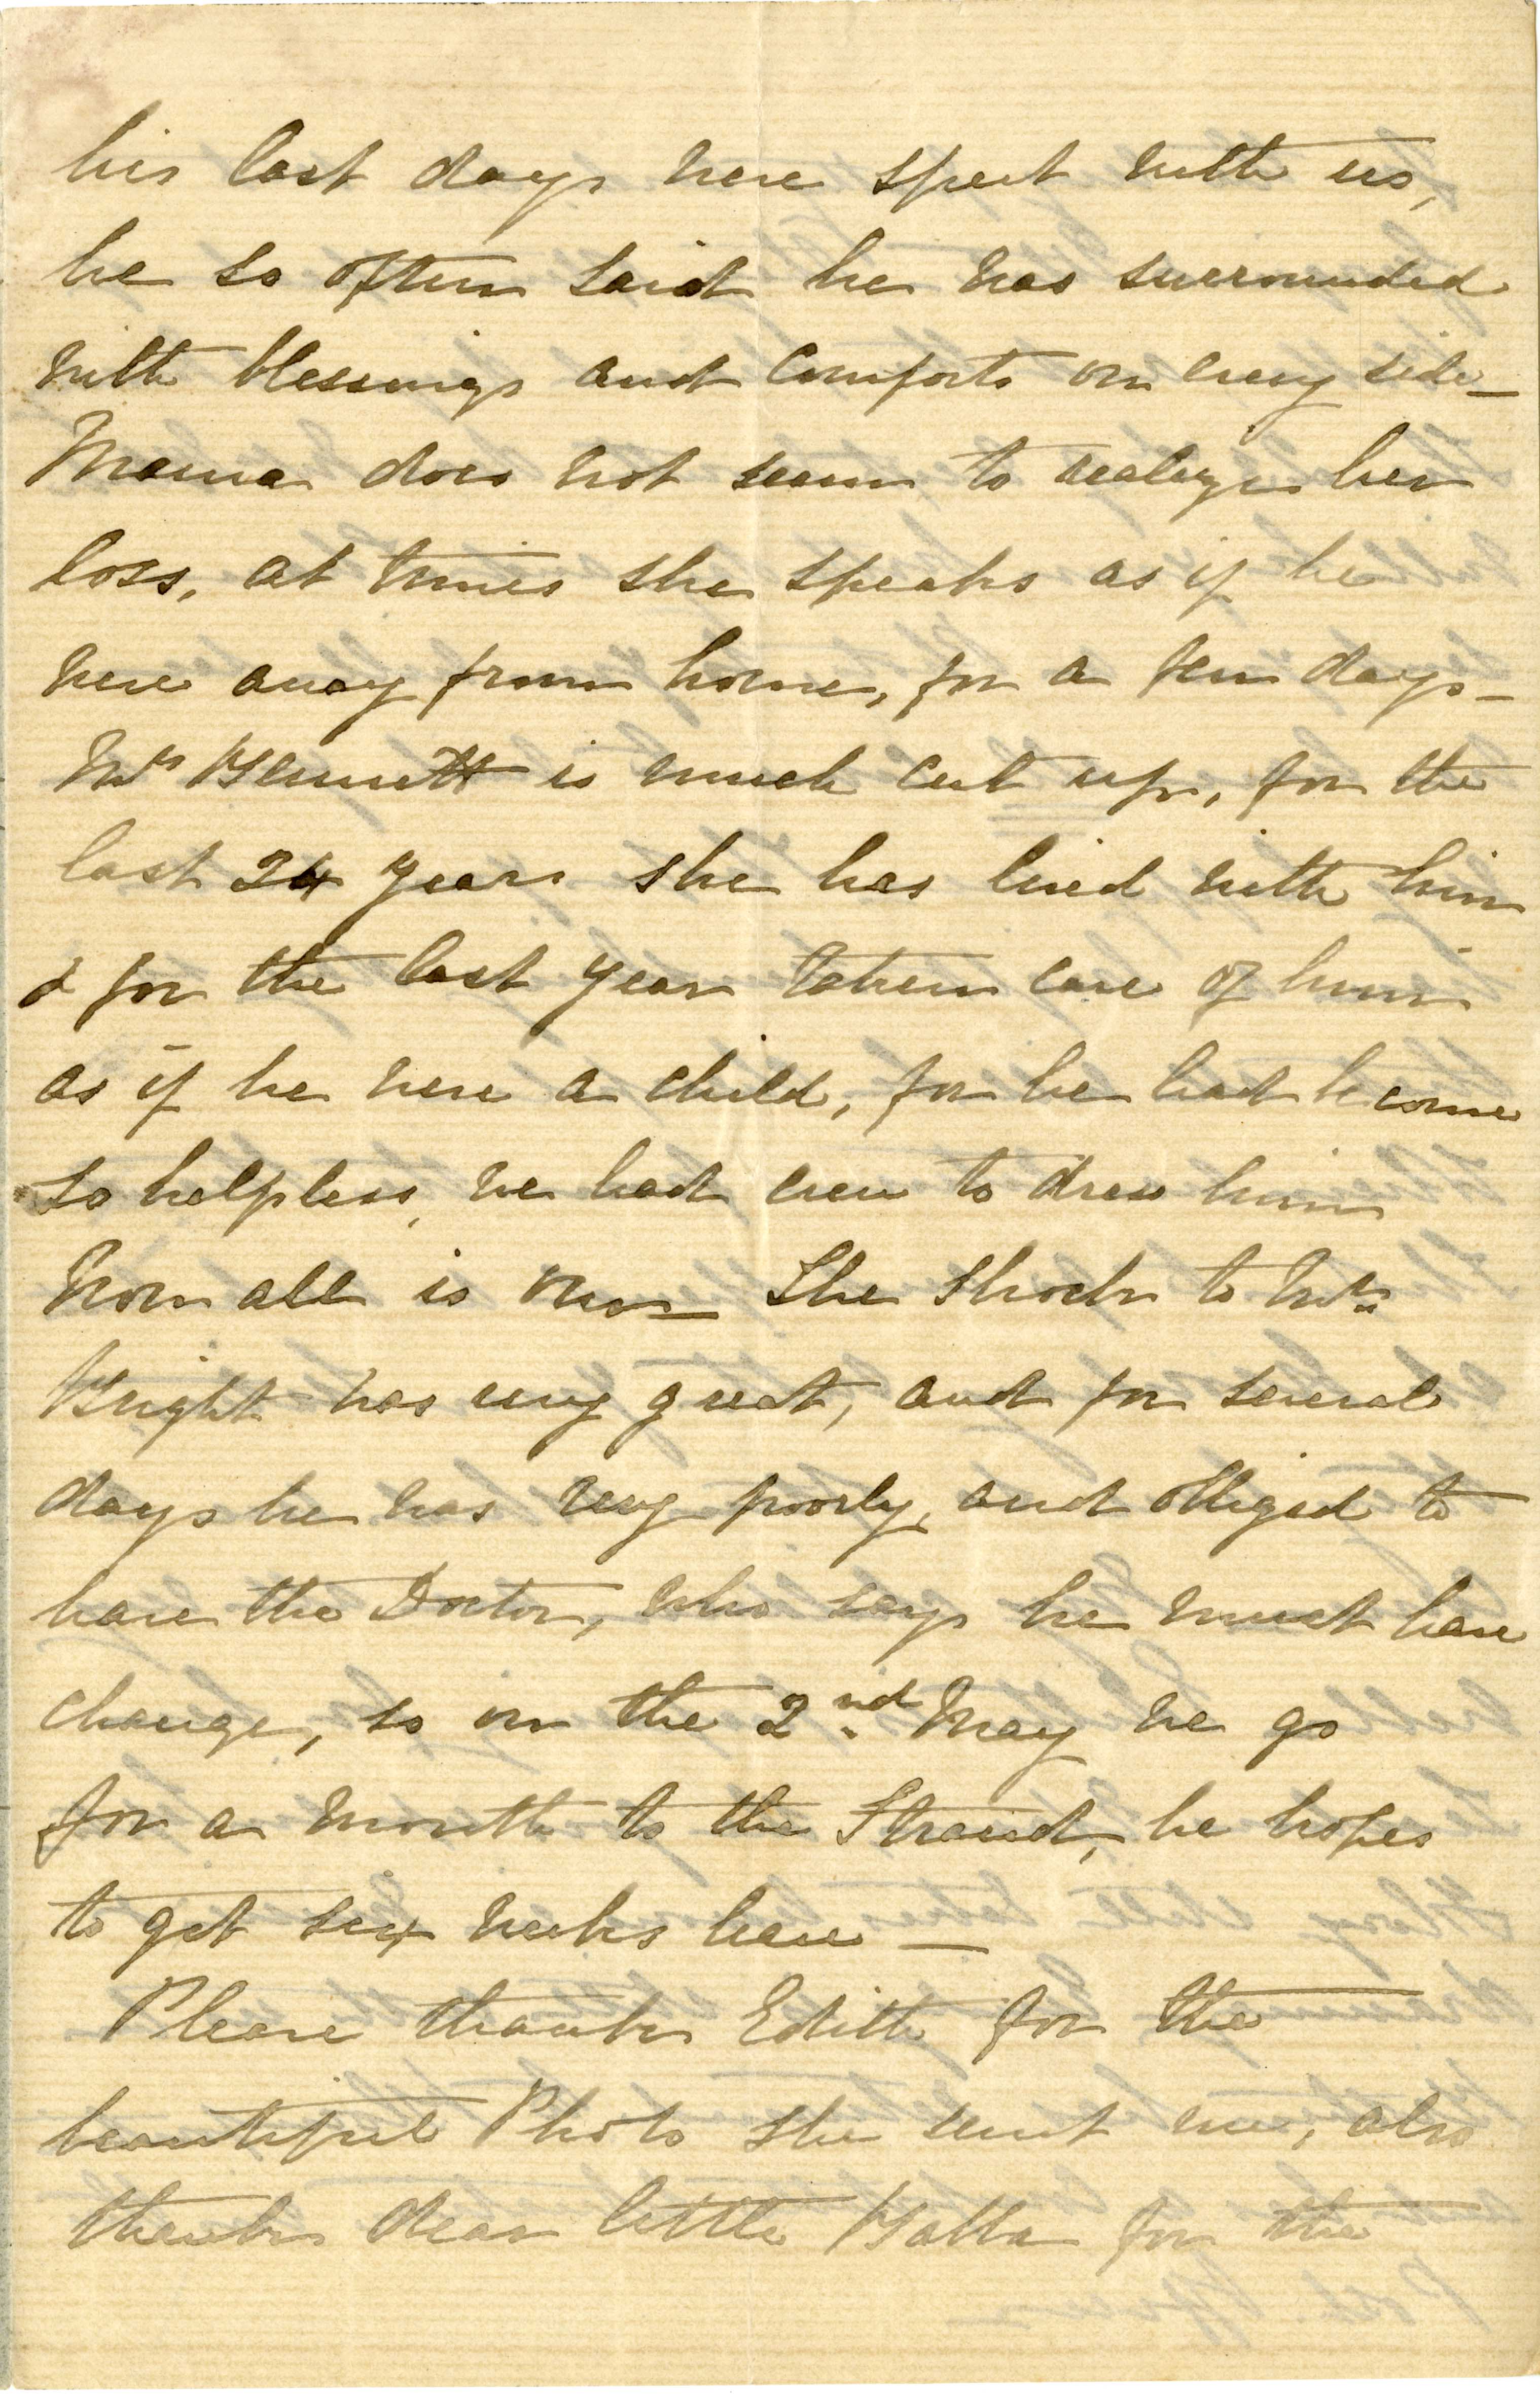 his last days were spent with us,
he so often said he was surrounded
with blessings and comforts on every side –
Mama does not seem to realize her
loss, at times she speaks as if he
were away from home, for a few days –
Mrs Bennett is much cut up, for the
last 24 years she has lived with him
& for the last year taken care of him
as if he were a child, for he had become
so helpless, we had even to dress him
Now all is over – The shock to Mr.
Bright was very great, and for several
days he was very poorly, and obliged to
have the Doctor, who says he must have
change, so on the 2nd May we go
for a month to the Strand, he hopes
to get six weeks leave –
Please thank Edith for the
beautiful Photo she sent me, also
thank dear little for the